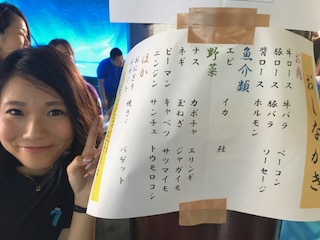 おしながき
お肉
牛ロース 牛バラ ベーコン
豚ロース 豚バラ ソーセージ
背ロース ホルモン
魚介類
エビ イカ
野菜
ナス カボチャ エリンギ
ネギ 玉ねぎ ジャガイモ
ピーマン キャベツ サツマイモ
ニンジン サンチュ トウモロコシ
ほか
バゲット